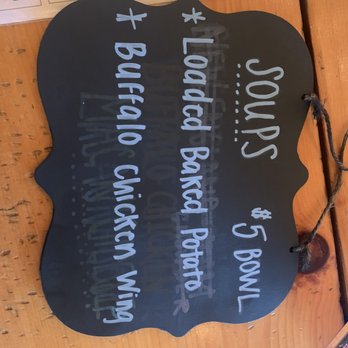 SOUPS $5 BOWL
* Loaded Baked Potato
* Buffalo Chicken Wing